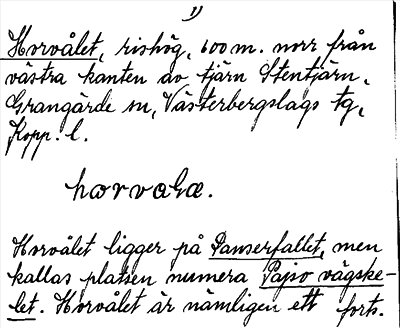 1)
Horvålet, rishög, 600 m. norr från
västra kanten av tjärn Stentjärn,
Grangärde sn, Västerbergslags tg,
Kopp. l.
horvaLæ.
Horvålet ligger på Panserfallet, men
kallas platsen numera Pajso vägske-
let. Horvålet är nämligen ett forts.